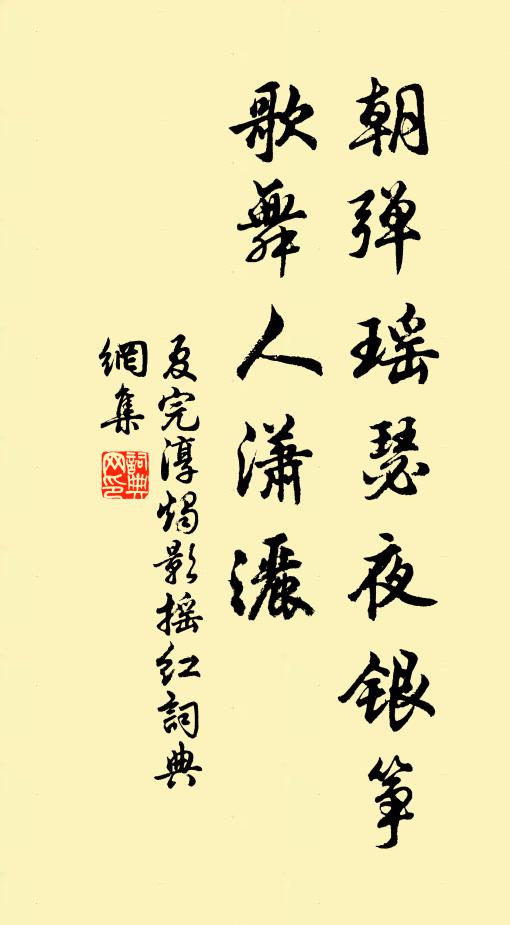 朝弹瑶瑟夜银筝
歌舞人潇灑
夏完淳烛影摇红詞典
網集
詞典网印